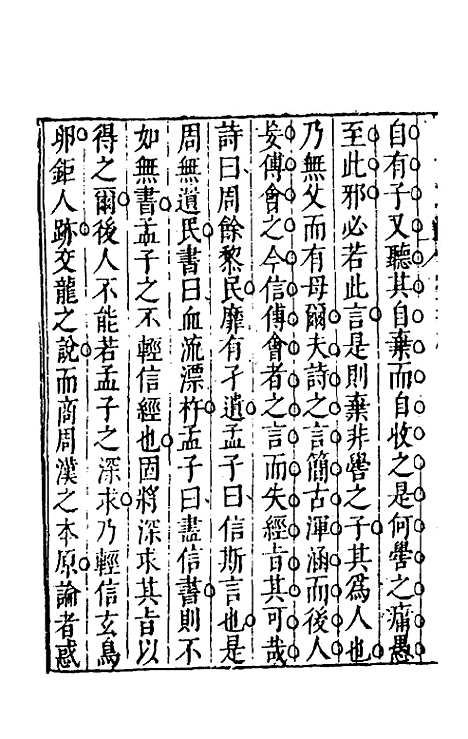 自有子又聽其自棄而自收之是何嚳之痡愚
至此邪必若此言是則棄非嚳之子其爲人也
乃無父而有母爾夫詩之言簡古渾涵而後人
妄傅會之今信傅會者之言而失經旨其可哉
詩曰周餘黎民靡有孑遺孟子曰信斯言也是
周無遺民書曰血流漂杵孟子曰盡信書則不
如無書孟子之不輕信經也固將深求其旨以
得之爾後人不能若孟子之深求乃輕信玄鳥
卵鉅人跡交龍之說而商周漢之本原論者惑